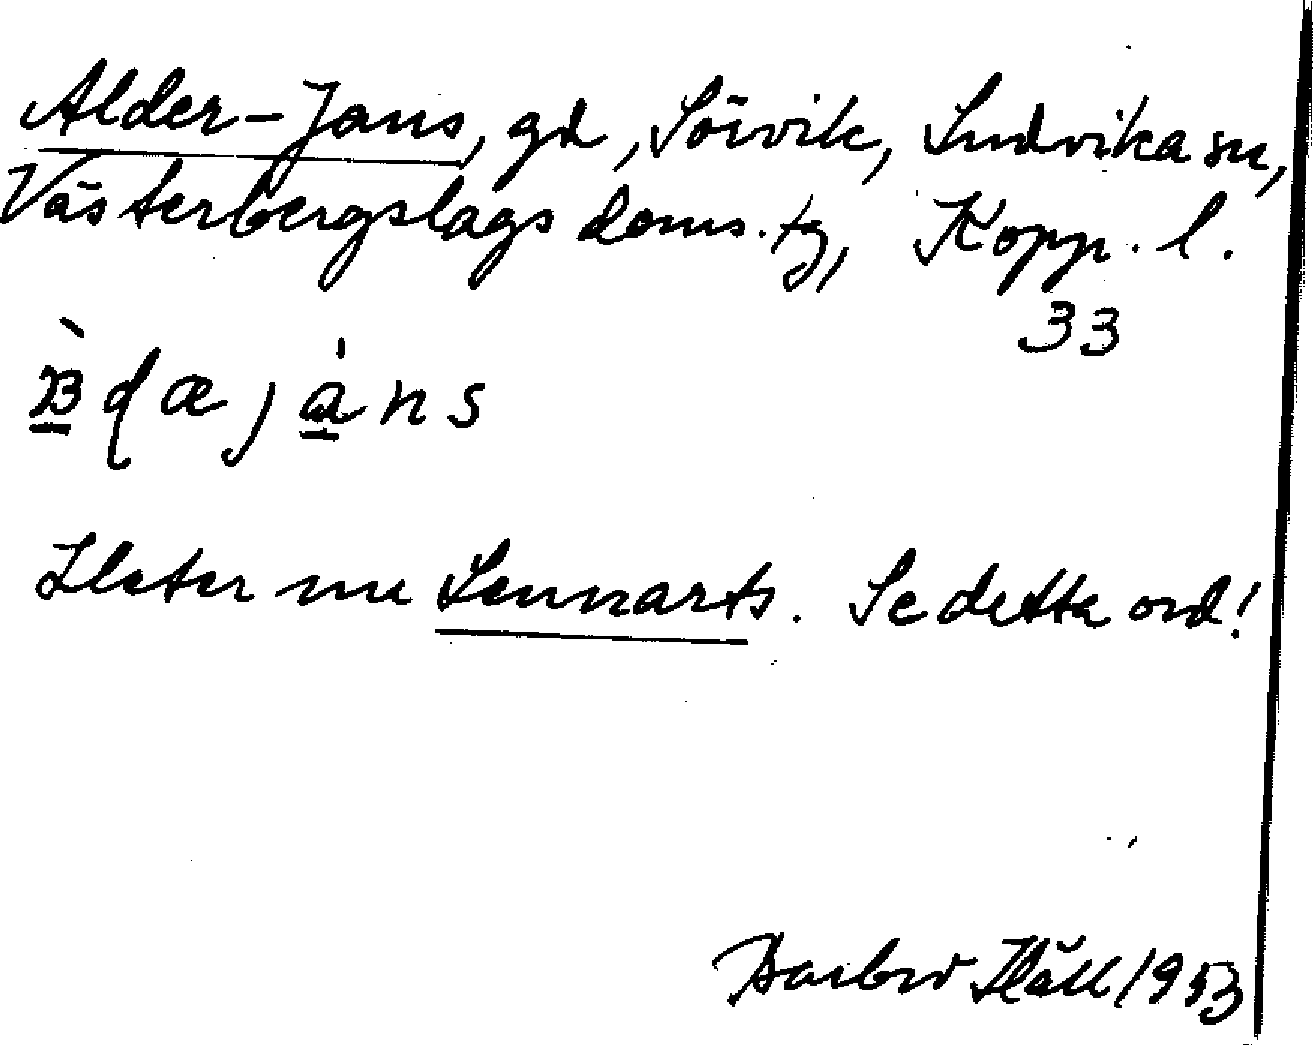 Alder-Jans, gd, Sörvik, Ludvika sn,
Västerbergslags doms. tg, Kopp. l.
33
Heter nu Lennarts. Se detta ord!
Häll 1953